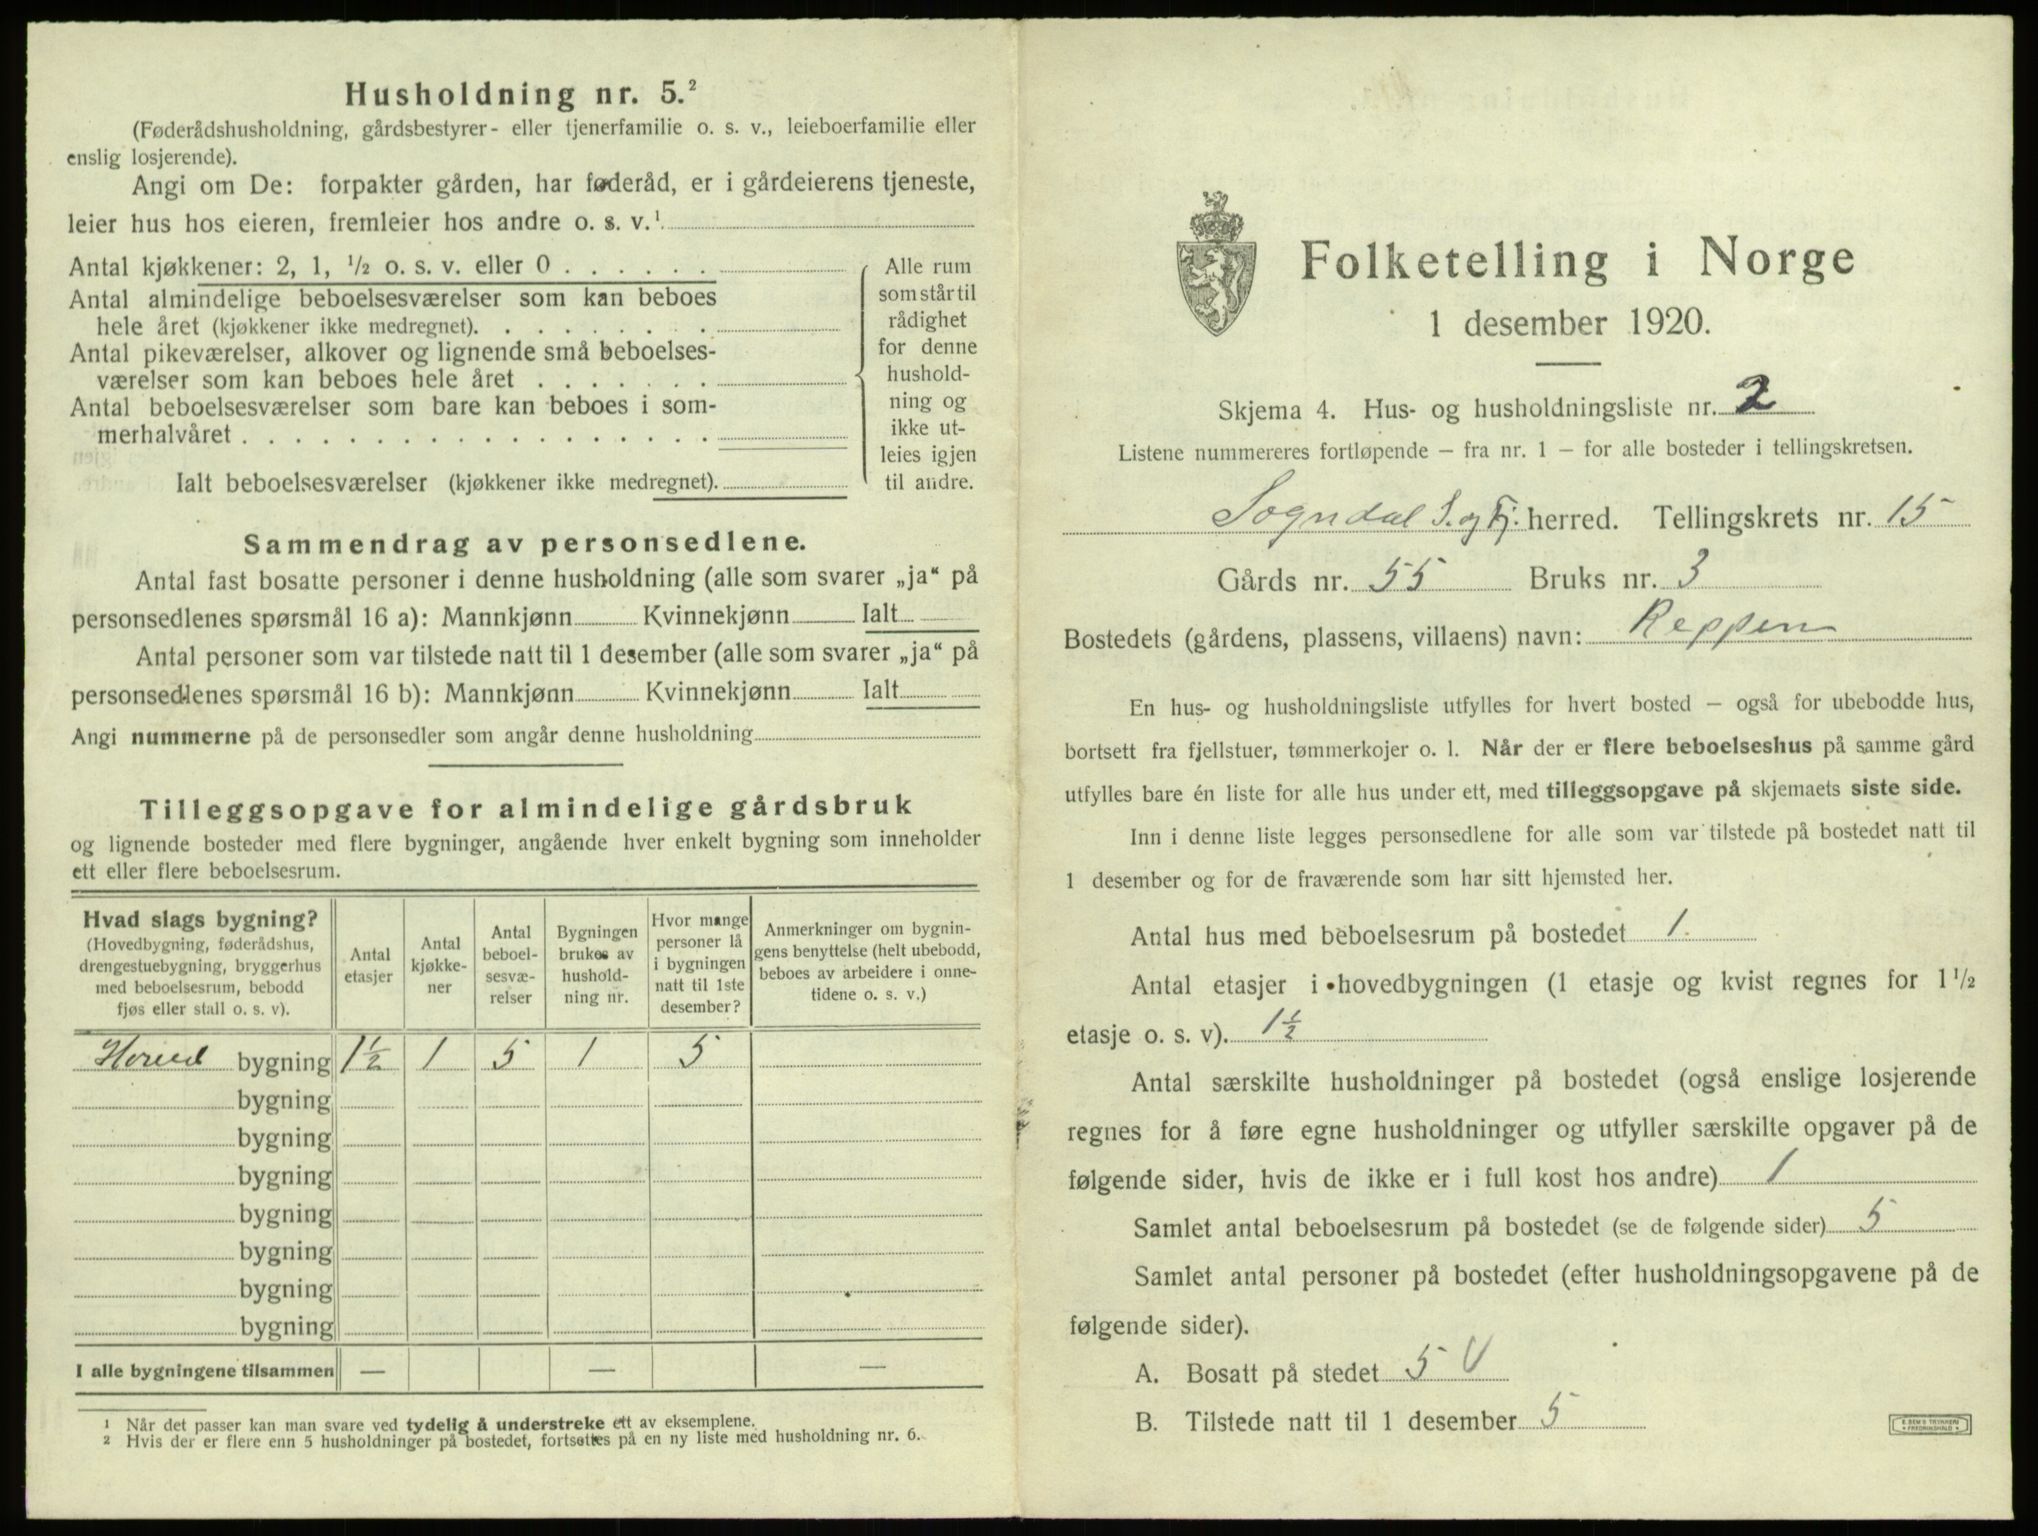 Husholdning nr. 5.²
(Føderådshusholdning, gårdsbestyrer- eller tjenerfamilie o. s. v., leieboerfamilie eller
enslig losjerende).
Angi om De: forpakter gården, har føderåd, er i gårdeierens tjeneste,
leier hus hos eieren, fremleier hos andre o. s. v.¹
Antal kjøkkener: 2, 1, ½ o. s. v. eller 0 . . . . . .
Antal almindelige beboelsesværelser som kan beboes
hele året (kjøkkener ikke medregnet). . . . . . . . .
Antal pikeværelser, alkover og lignende små beboelses-
værelser som kan beboes hele året . . . . . . .
Antal beboelsesværelser som bare kan beboes i som-
merhalvåret . . . . . . . . . . . . . . . . . .
Ialt beboelsesværelser (kjøkkener ikke medregnet).
Alle rum
som står til
rådighet
for denne
hushold-
ning og
ikke ut-
leies igjen
til andre.
Sammendrag av personsedlene.
Antal fast bosatte personer i denne husholdning (alle som svarer „ja“ på
personsedlenes spørsmål 16 a): Mannkjønn Kvinnekjønn Ialt
Antal personer som var tilstede natt til 1 desember (alle som svarer „ja“ på
personsedlenes spørsmål 16 b): Mannkjønn Kvinnekjønn Ialt
Angi nummerne på de personsedler som angår denne husholdning
Tilleggsopgave for almindelige gårdsbruk
og lignende bosteder med flere bygninger, angående hver enkelt bygning som inneholder
ett eller flere beboelsesrum.
Hvad slags bygning?
(Hovedbygning, føderådshus,
drengestuebygning, bryggerhus
med beboelsesrum, bebodd
fjøs eller stall o. s. v).
Antal
etasjer
Antal
kjøkke-
ner
Antal
beboel-
sesvæ-
relser
Bygningen
brukes av
hushold-
ning nr.
Hvor mange
personer lå
i bygningen
natt til 1ste
desember?
Anmerkninger om bygnin-
gens benyttelse (helt ubebodd,
beboes av arbeidere i onne-
tidene o. s. v.)
Hoved bygning 1½ 1 5 1 5
bygning
bygning
bygning
bygning
bygning
bygning
bygning
I alle bygningene tilsammen — — —
¹ Når det passer kan man svare ved tydelig å understreke ett av eksemplene.
² Hvis der er flere enn 5 husholdninger på bostedet, fortsettes på en ny liste med husholdning nr. 6.
Folketelling i Norge
1 desember 1920.
Skjema 4. Hus- og husholdningsliste nr. 2
Listene nummereres fortløpende – fra nr. 1 – for alle bosteder i tellingskretsen.
Sogndal S. og Fj. herred. Tellingskrets nr. 15
Gårds nr. 55 Bruks nr. 3
Bostedets (gårdens, plassens, villaens) navn: Reppen
En hus- og husholdningsliste utfylles for hvert bosted – også for ubebodde hus,
bortsett fra fjellstuer, tømmerkojer o. l. Når der er flere beboelseshus på samme gård
utfylles bare én liste for alle hus under ett, med tilleggsopgave på skjemaets siste side.
Inn i denne liste legges personsedlene for alle som var tilstede på bostedet natt til
1 desember og for de fraværende som har sitt hjemsted her.
Antal hus med beboelsesrum på bostedet 1.
Antal etasjer i hovedbygningen (1 etasje og kvist regnes for 1½
etasje o. s. v). 1½
Antal særskilte husholdninger på bostedet (også enslige losjerende
regnes for å føre egne husholdninger og utfyller særskilte opgaver på de
følgende sider, hvis de ikke er i full kost hos andre) 1
Samlet antal beboelsesrum på bostedet (se de følgende sider) 5
Samlet antal personer på bostedet (efter husholdningsopgavene på de
følgende sider).
A. Bosatt på stedet 5 V
B. Tilstede natt til 1 desember 5
E. SEM'S TRYKKERI
FREDRIKSHALD